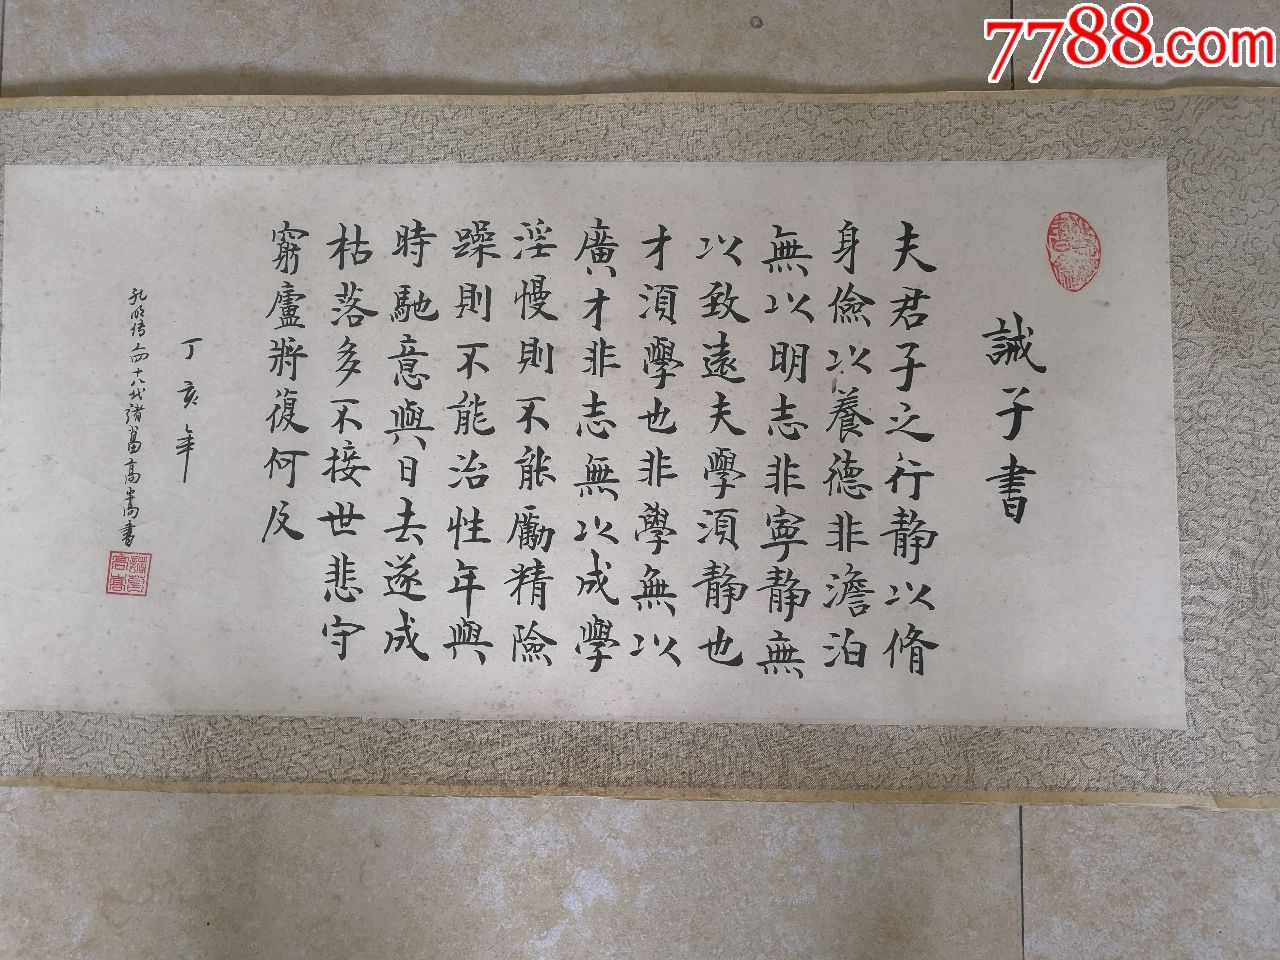 7788.com
誡子書
夫君子之行静以脩
身儉以養德非澹泊
無以明志非寧静無
以致遠夫學須静也
才須學也非學無以
廣才非志無以成學
淫慢則不能勵精險
躁則不能治性年與
時馳意與日去遂成
枯落多不接世悲守
窮廬將復何及
丁亥年
孔明传四十八代諸葛高書